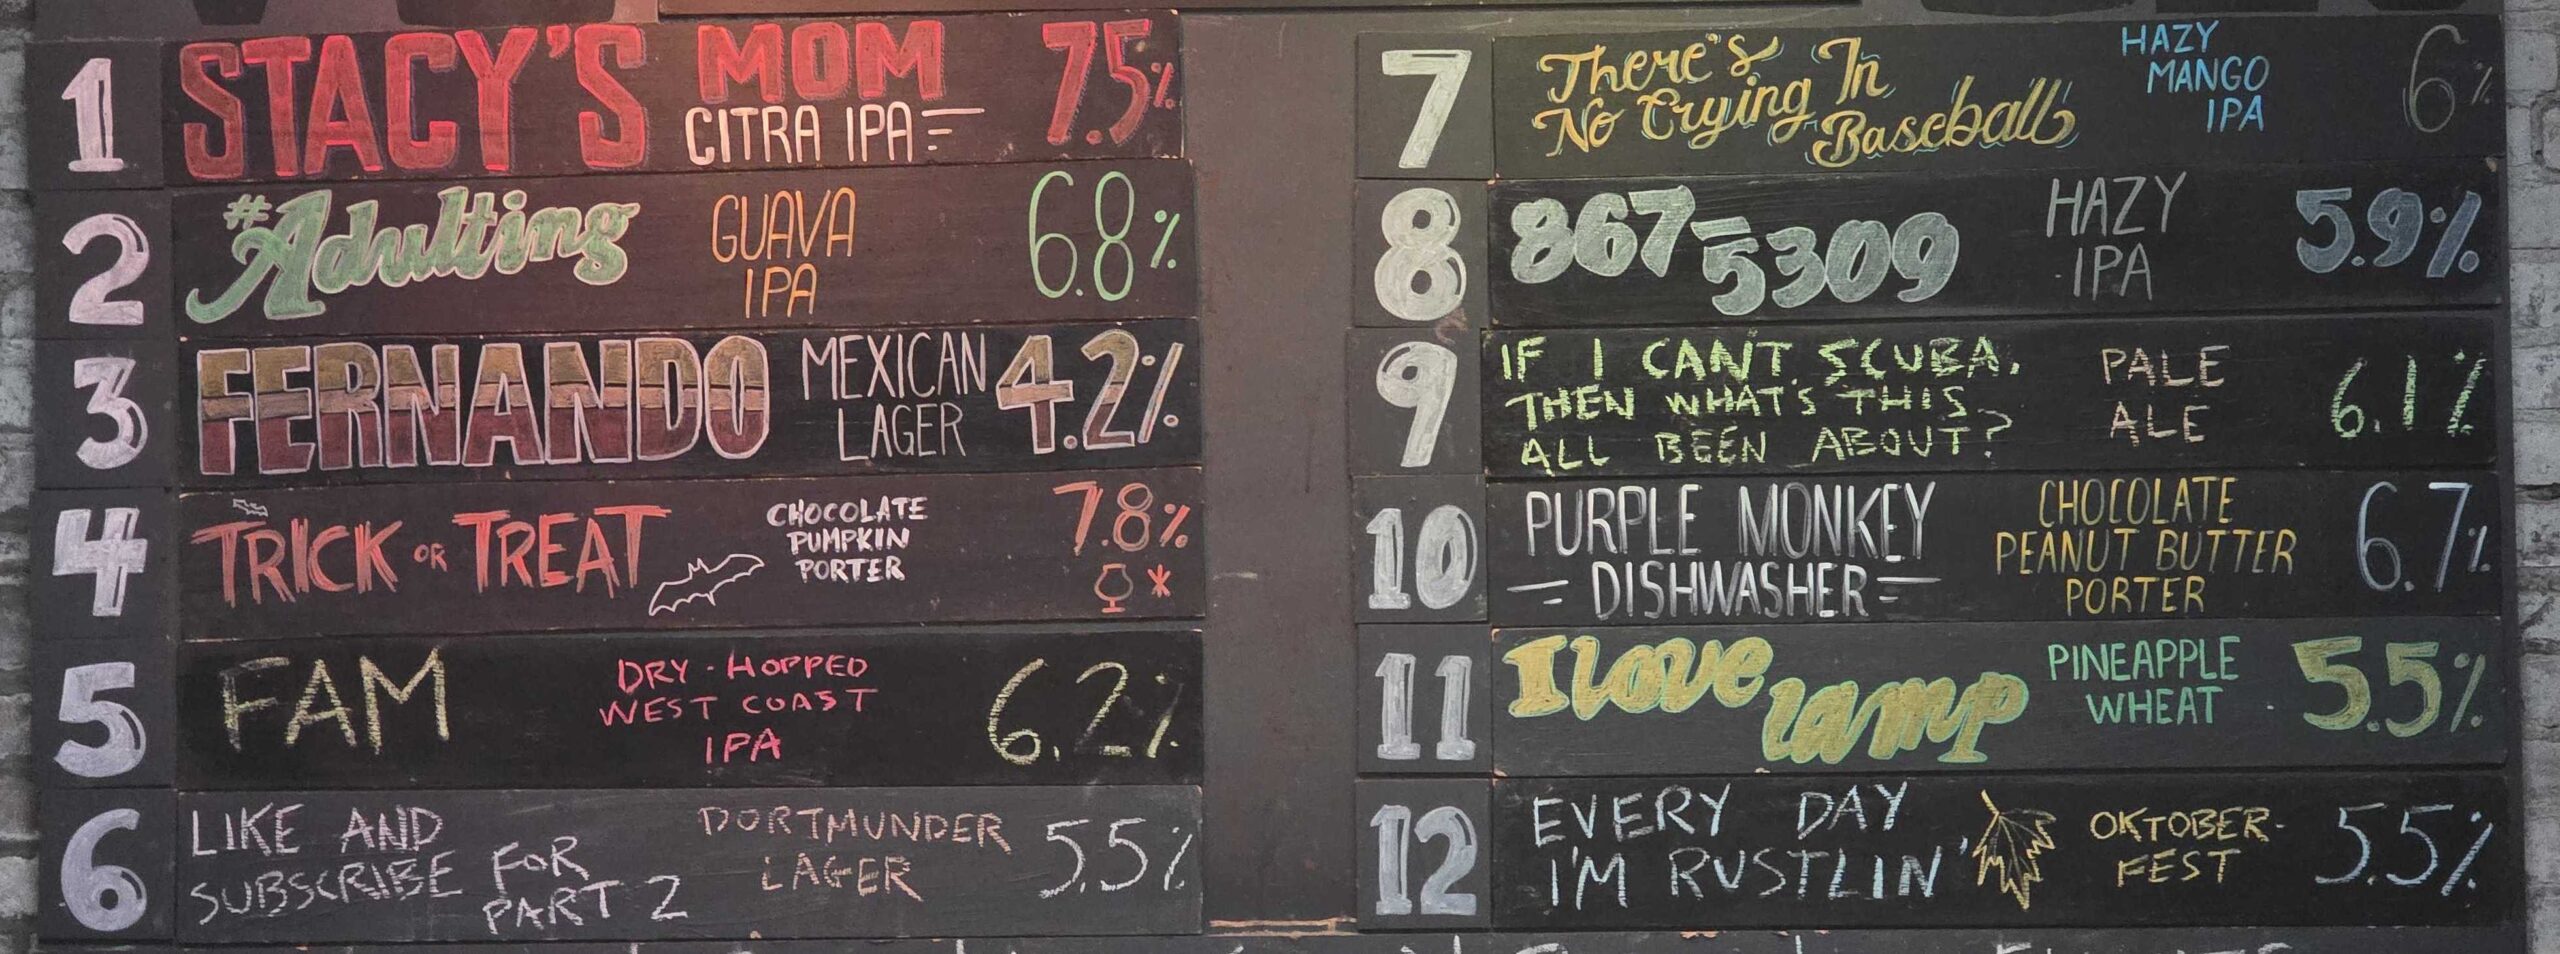 1
STACY'S MOM
CITRA IPA
7.5%
2
#Adulting
GUAVA
IPA
6.8%
3
FERNANDO
MEXICAN
LAGER
4.2%
4
TRICK OR TREAT
CHOCOLATE
PUMPKIN
PORTER
7.8%
*
5
FAM
DRY-HOPPED
WEST COAST
IPA
6.2%
6
LIKE AND
SUBSCRIBE FOR
PART 2
DORTMUNDER
LAGER
5.5%
7
There's
No Crying In
Baseball
HAZY
MANGO
IPA
6%
8
867-5309
HAZY
IPA
5.9%
9
IF I CAN'T SCUBA,
THEN WHAT'S THIS
ALL BEEN ABOUT?
PALE
ALE
6.1%
10
PURPLE MONKEY
DISHWASHER
CHOCOLATE
PEANUT BUTTER
PORTER
6.7%
11
I love lamp
PINEAPPLE
WHEAT
5.5%
12
EVERY DAY
I'M RUSTLIN'
OKTOBER-
FEST
5.5%